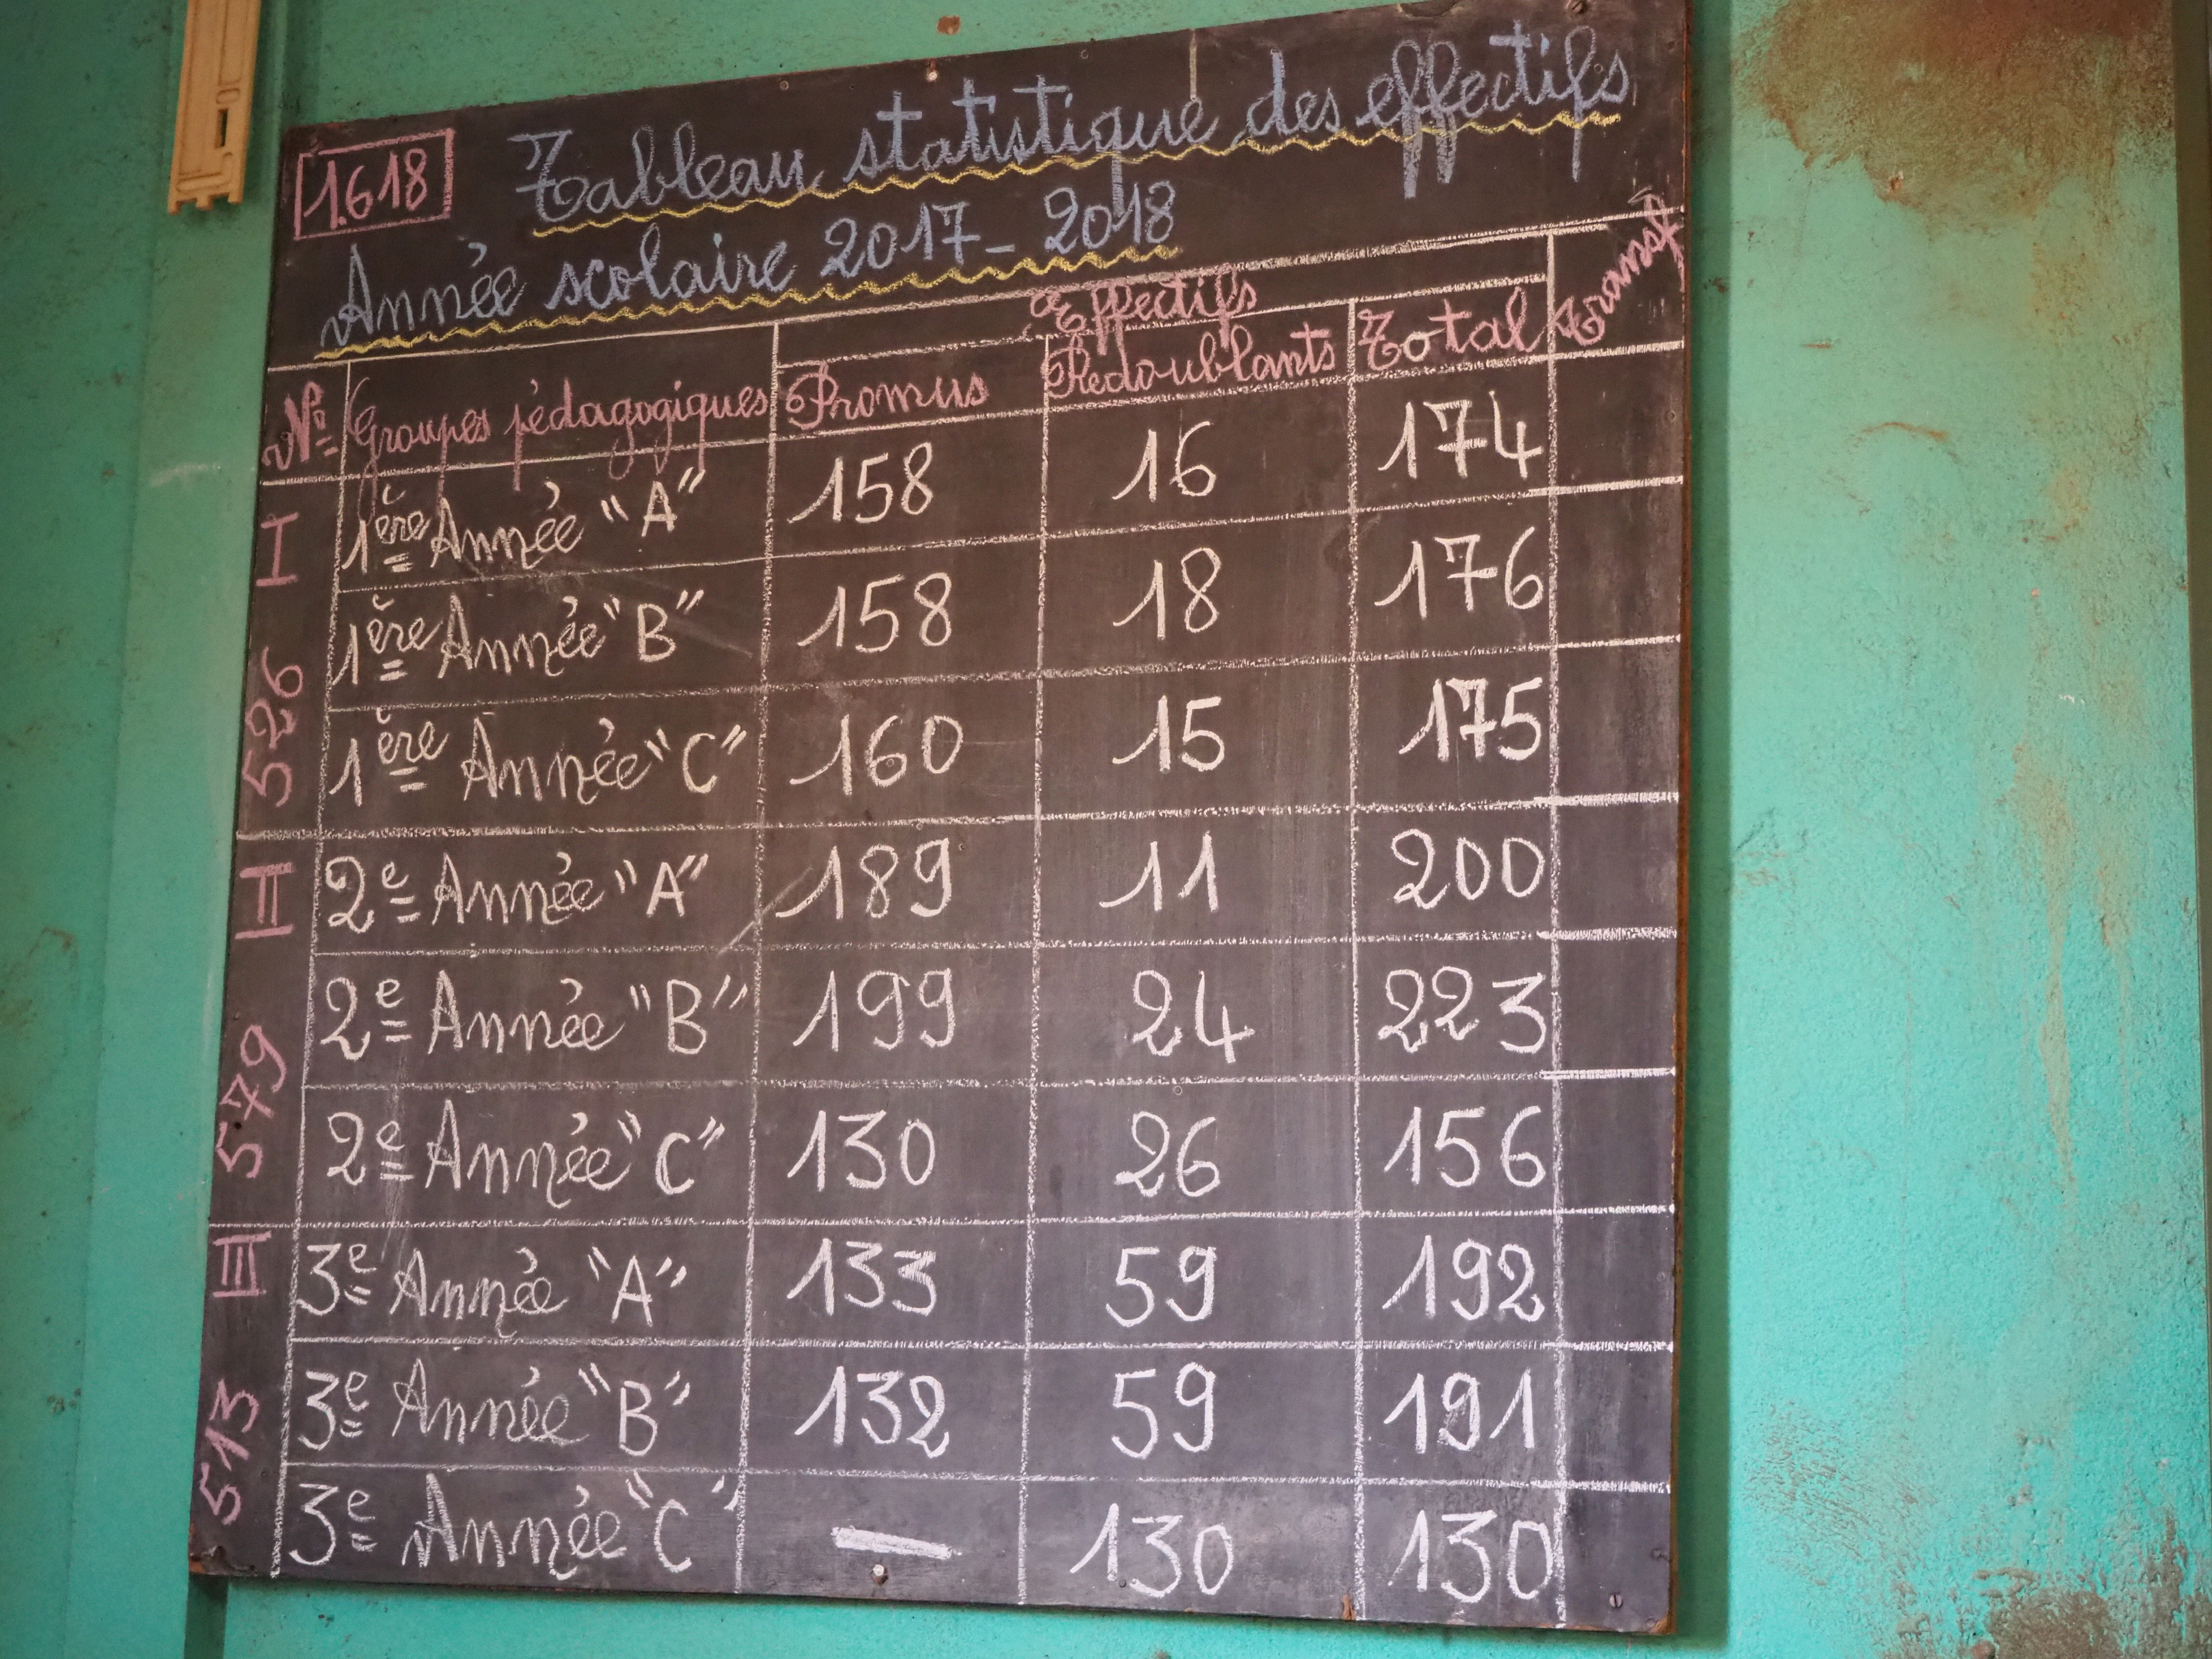 1.618
Tableau statistique des effectifs
Année scolaire 2017-2018
N° Groupes pédagogiques Effectifs Transf
Promus Redoublants Total
I 1ère Année "A" 158 16 174
1ère Année "B" 158 18 176
526 1ère Année "C" 160 15 175
II 2e Année "A" 189 11 200
2e Année "B" 199 24 223
579 2e Année "C" 130 26 156
III 3e Année "A" 133 59 192
3e Année "B" 132 59 191
513 3e Année "C" — 130 130